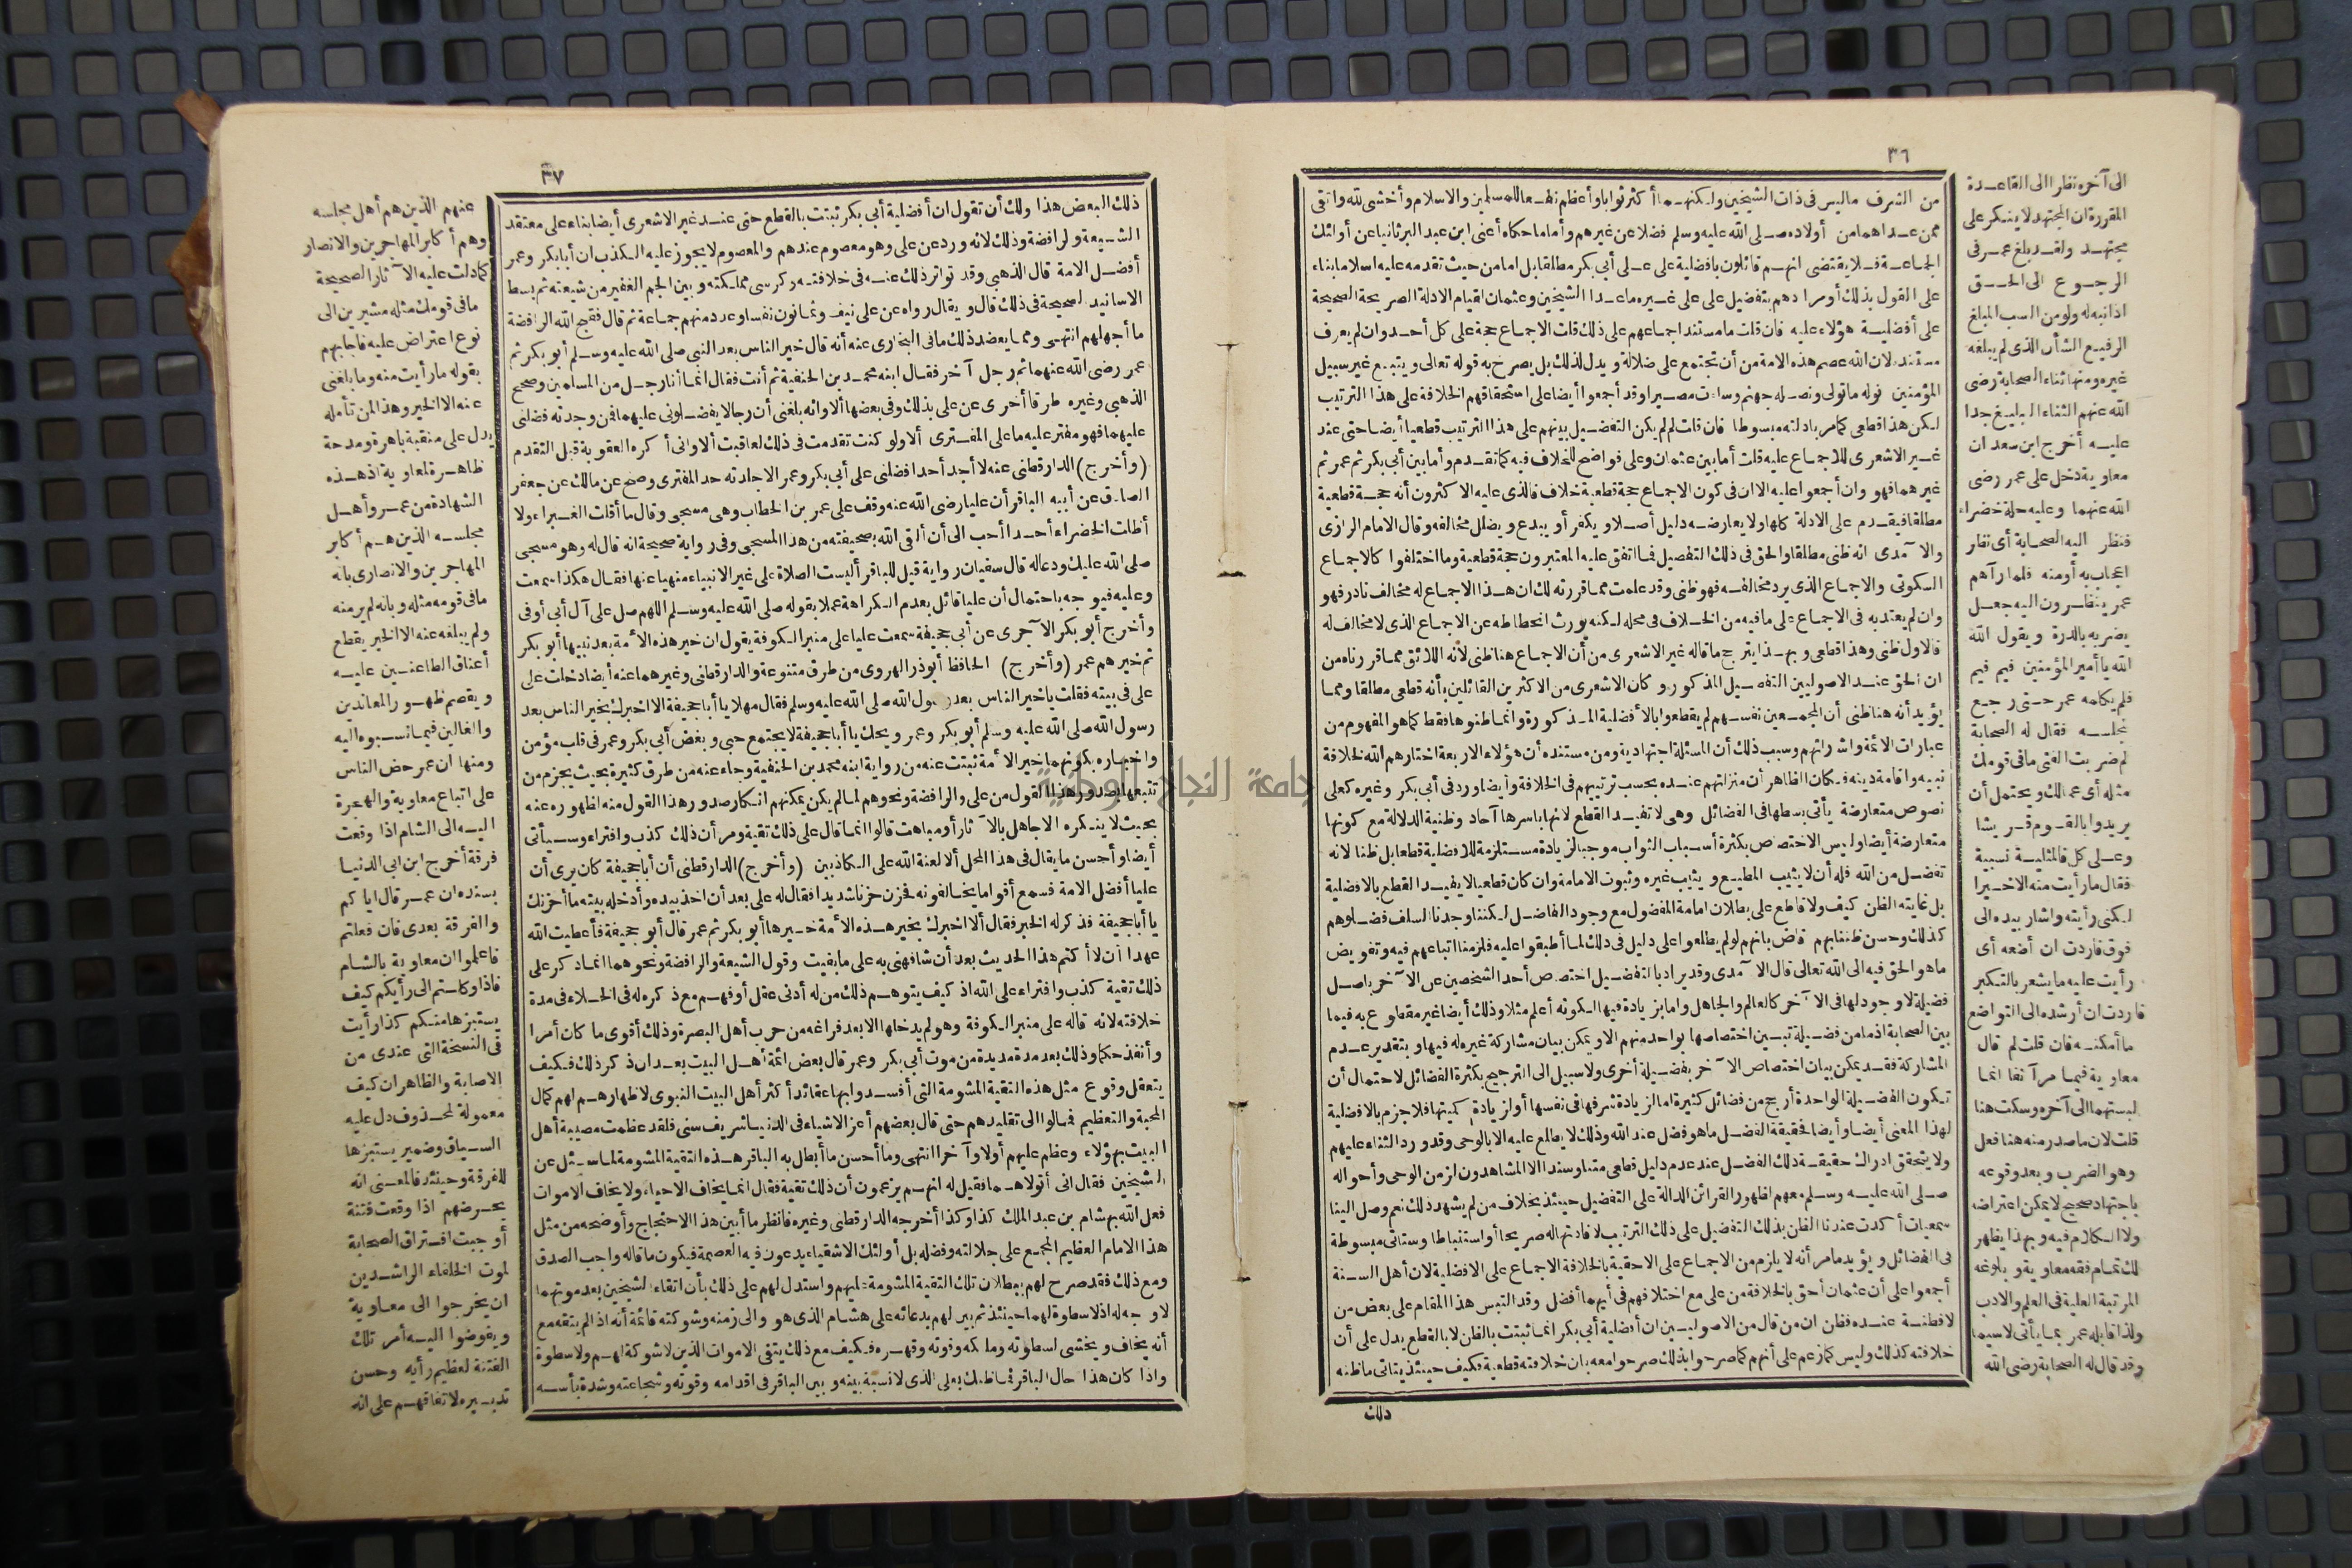 ٣٦
من الشرف ماليس فى ذات الشيخين ولكنهما أكثر ثوابا وأعظم نفعا للمسلمين والاسلام وأخشى لله واتقى
ممن عداهما من أولاده صلى الله عليه وسلم فضلا عن غيرهم وأما ما حكاه أعنى ابن عبد البر ثانيا عن أولئك
الجماعة فلا يقتضى انهم قائلون بافضلية على على أبى بكر مطلقا بل اما من حيث تقدمه عليه اسلاما بناء
على القول بذلك أو مرادهم بتفضيل على على غيره ماعدا الشيخين وعثمان لقيام الادلة الصريحة الصحيحة
على أفضلية هؤلاء عليه فان قلت ما مستند اجماعهم على ذلك قلت الاجماع حجة على كل أحد وان لم يعرف
مستنده لان الله عصم هذه الامة من أن تجتمع على ضلالة ويدل لذلك بل يصرح به قوله تعالى ويتبع غير سبيل
المؤمنين نوله ما تولى ونصله جهنم وساءت مصيرا وقد أجمعوا أيضا على استحقاقهم الخلافة على هذا الترتيب
لكن هذا قطعى كما مر بادلته مبسوطا فان قلت لم لم يكن التفضيل بينهم على هذا الترتيب قطعيا أيضا حتى عند
غير الاشعرى للاجماع عليه قلت أما بين عثمان وعلى فواضح للخلاف فيه كما تقدم وأما بين أبى بكر ثم عمر ثم
غيرهما فهو وان أجمعوا عليه الا ان فى كون الاجماع حجة قطعية خلاف فالذى عليه الاكثرون أنه حجة قطعية
مطلقا فيقدم على الادلة كلها ولا يعارضه دليل أصلا ويكفر أو يبدع ويضلل مخالفه وقال الامام الرازى
والآمدى انه ظنى مطلقا والحق فى ذلك التفصيل فما اتفق عليه المعتبرون حجة قطعية وما اختلفوا كالاجماع
السكوتى والاجماع الذى يرد مخالفه فهو ظنى وقد علمت مما قررته لك ان هذا الاجماع له مخالف نادر فهو
وان لم يعتد به فى الاجماع على ما فيه من الخلاف فى محله لكنه يورث انحطاطه عن الاجماع الذى لا مخالف له
فالاول ظنى وهذا قطعى وبهذا يترجح ما قاله غير الاشعرى من أن الاجماع هنا ظنى لأنه اللائق مما قررناه من
ان الحق عند الاصوليين التفصيل المذكور وكان الاشعرى من الاكثرين القائلين بأنه قطعى مطلقا ومما
يؤيد أنه هنا ظنى أن المجمعين نفسهم لم يقطعوا بالأفضلية المذكورة وانما ظنوها فقط كما هو المفهوم من
عبارات الائمة واشاراتهم وسبب ذلك أن المسئلة اجتهادية ومن مستنده أن هؤلاء الاربعة اختارهم الله لخلافة
نبيه واقامة دينه فكان الظاهر أن منزلتهم عنده بحسب ترتيبهم فى الخلافة وأيضا ورد فى أبى بكر وغيره كعلى
نصوص متعارضة يأتى بسطها فى الفضائل وهى لا تفيد القطع لانها باسرها آحاد وظنية الدلالة مع كونها
متعارضة أيضا وليس الاختصاص بكثرة أسباب الثواب موجبا لزيادة مستلزمة للافضلية قطعا بل ظنا لانه
تفضل من الله فله أن لا يثيب المطيع ويثيب غيره وثبوت الامامة وان كان قطعيا لا يفيد القطع بالافضلية
بل غايته الظن كيف ولا قاطع على بطلان امامة المفضول مع وجود الفاضل لكننا وجدنا السلف فضلوهم
كذلك وحسن ظننا بهم قاض بانهم لو لم يطلعوا على دليل فى ذلك لما أطبقوا عليه فلزمنا اتباعهم فيه وتفويض
ما هو الحق فيه الى الله تعالى قال الآمدى وقد يراد بالتفضيل اختصاص أحد الشخصين عن الآخر باصل
فضيلة لا وجود لها فى الآخر كالعالم والجاهل واما بزيادة فيها ككونه أعلم مثلا وذلك أيضا غير مقطوع به فيما
بين الصحابة اذ ما من فضيلة تبين اختصاصها بواحد منهم الا ويمكن بيان مشاركة غيره له فيها وبتقدير عدم
المشاركة فقد يمكن بيان اختصاص الآخر بفضيلة أخرى ولا سبيل الى الترجيح بكثرة الفضائل لاحتمال أن
تكون الفضيلة الواحدة أرجح من فضائل كثيرة اما لزيادة شرفها فى نفسها أو لزيادة كميتها فلا جزم بالافضلية
لهذا المعنى أيضا وأيضا فحقيقة الفضل ما هو فضل عند الله وذلك لا يطلع عليه الا بالوحى وقد ورد الثناء عليهم
ولا يتحقق ادراك حقيقة ذلك الفضل عند عدم دليل قطعى متنا وسندا الا المشاهدون لزمن الوحى وأحواله
صلى الله عليه وسلم معهم لظهور القرائن الدالة على التفضيل حينئذ بخلاف من لم يشهد ذلك نعم وصل الينا
سمعيات أكدت عندنا الظن بذلك التفضيل على ذلك الترتيب لافادتها له صريحا أو استنباطا وستأتى مبسوطة
فى الفضائل ويؤيد ما مر أنه لا يلزم من الاجماع على الاحقية بالخلافة الاجماع على الافضلية لان أهل السنة
أجمعوا على أن عثمان أحق بالخلافة من على مع اختلافهم فى أيهما أفضل وقد التبس هذا المقام على بعض من
لا فطنة عنده فظن ان من قال من الاصوليين ان أفضلية أبى بكر انما ثبتت بالظن لا بالقطع يدل على أن
خلافته كذلك وليس كما زعم على أنهم كما صرحوا بذلك صرحوا معه بان خلافته قطعية فكيف حينئذ يتأتى ما ظنه
ذلك
الى آخره نظرا الى القاعدة
المقررة ان المجتهد لا ينكر على
مجتهد ولقد بلغ عمر فى
الرجوع الى الحق
اذا تنبه له ولو من السب المبلغ
الرفيع الشأن الذى لم يبلغه
غيره ومنها ثناء الصحابة رضى
الله عنهم الثناء البليغ جدا
عليه أخرج ابن سعد ان
معاوية دخل على عمر رضى
الله عنهما وعليه حلة خضراء
فنظر اليه الصحابة أى نظر
اعجاب به أو منه فلما رآهم
عمر ينظرون اليه جعل
يضربه بالدرة ويقول الله
الله يا أمير المؤمنين فيم فيم
فلم يكلمه عمر حتى رجع
لمجلسه فقال له الصحابة
لم ضربت الفتى ما فى قومك
مثله أى عمالك ويحتمل أن
يريدوا بالقوم قريشا
وعلى كل فالمثلية نسبية
فقال ما رأيت منه الا خيرا
لكنى رأيته وأشار بيده الى
فوق فاردت ان أضعه أى
رأيت عليه ما يشعر بالتكبر
فاردت ان أرشده الى التواضع
ما أمكنه فان قلت لم قال
معاوية فيما مر آنفا انما
لبستهما الى آخره وسكت هنا
قلت لان ما صدر منه هنا فعل
وهو الضرب وبعد وقوعه
باجتهاد صحيح لا يمكن اعتراضه
ولا الكلام فيه وبهذا يظهر
لك تمام فقه معاوية وبلوغه
المرتبة العلية فى العلم والادب
ولذا قابله عمر بما يأتى لا سيما
وقد قال له الصحابة رضى الله
٣٧
ذلك البعض هذا ولك أن تقول ان أفضلية أبى بكر ثبتت بالقطع حتى عند غير الاشعرى أيضا بناء على معتقد
الشيعة والرافضة وذلك لانه ورد عن على وهو معصوم عندهم والمعصوم لا يجوز عليه الكذب ان أبا بكر وعمر
أفضل الامة قال الذهبى وقد تواتر ذلك عنه فى خلافته وكرسى مملكته وبين الجم الغفير من شيعته ثم بسط
الاسانيد الصحيحة فى ذلك قال ويقال رواه عن على نيف وثمانون نفسا وعدد منهم جماعة ثم قال فقبح الله الرافضة
ما أجهلهم انتهى ومما يعضد ذلك ما فى البخارى عنه أنه قال خير الناس بعد النبى صلى الله عليه وسلم أبو بكر ثم
عمر رضى الله عنهما ثم رجل آخر فقال ابنه محمد بن الحنفية ثم أنت فقال انما أنا رجل من المسلمين وصحح
الذهبى وغيره طرقا أخرى عن على بذلك وفى بعضها ألا وانه بلغنى أن رجالا يفضلونى عليهما فمن وجدته فضلنى
عليهما فهو مفتر عليه ما على المفترى ألا ولو كنت تقدمت فى ذلك لعاقبت ألا وانى أكره العقوبة قبل التقدم
(وأخرج) الدارقطنى عنه لا أجد أحدا فضلنى على أبى بكر وعمر الا جلدته حد المفترى وصح عن مالك عن جعفر
الصادق عن أبيه الباقر أن عليا رضى الله عنه وقف على عمر بن الخطاب وهو مسجى وقال ما أقلت الغبراء ولا
أظلت الخضراء أحدا أحب الى أن ألقى الله بصحيفته من هذا المسجى وفى رواية صحيحة انه قال له وهو مسجى
صلى الله عليك ودعا له قال سفيان رواية قيل للباقر أليست الصلاة على غير الانبياء منهيا عنها فقال هكذا سمعت
وعليه فيوجه باحتمال أن عليا قائل بعدم الكراهة عملا بقوله صلى الله عليه وسلم اللهم صل على آل أبى أوفى
وأخرج أبو بكر الآجرى عن أبى جحيفة سمعت عليا على منبر الكوفة يقول ان خير هذه الأمة بعد نبيها أبو بكر
ثم خيرهم عمر (وأخرج) الحافظ أبو ذر الهروى من طرق متنوعة والدارقطنى وغيرهما عنه أيضا دخلت على
على فى بيته فقلت يا خير الناس بعد رسول الله صلى الله عليه وسلم فقال مهلا يا أبا جحيفة ألا اخبرك بخير الناس بعد
رسول الله صلى الله عليه وسلم أبو بكر وعمر ويحك يا أبا جحيفة لا يجتمع حبى وبغض أبى بكر وعمر فى قلب مؤمن
واخباره بكونهما خير الأمة ثبتت عنه من رواية ابنه محمد بن الحنفية وجاء عنه من طرق كثيرة بحيث يجزم من
تتبعها بصدور هذا القول من على والرافضة ونحوهم لما لم يكن يمكنهم انكار صدور هذا القول منه لظهوره عنه
بحيث لا ينكره الا جاهل بالآثار أو مباهت قالوا انما قال على ذلك تقية ومر أن ذلك كذب وافتراء وسيأتى
أيضا وأحسن ما يقال فى هذا المحل ألا لعنة الله على الكاذبين (وأخرج) الدارقطنى أن أبا جحيفة كان يرى أن
عليا أفضل الامة فسمع أقواما يخالفونه فحزن حزنا شديدا فقال له على بعد أن أخذ بيده وأدخله بيته ما أحزنك
يا أبا جحيفة فذكر له الخبر فقال ألا أخبرك بخير هذه الأمة خيرها أبو بكر ثم عمر قال أبو جحيفة فأعطيت الله
عهدا أن لا أكتم هذا الحديث بعد أن شافهنى به على ما بقيت وقول الشيعة والرافضة ونحوهما انما ذكر على
ذلك تقية كذب وافتراء على الله اذ كيف يتوهم ذلك من له أدنى عقل أو فهم مع ذكره له فى الخلاء فى مدة
خلافته لانه قاله على منبر الكوفة وهو لم يدخلها الا بعد فراغه من حرب أهل البصرة وذلك أقوى ما كان أمرا
وأنفذ حكما وذلك بعد مدة مديدة من موت أبى بكر وعمر قال بعض ائمة أهل البيت بعد ان ذكر ذلك فكيف
يتعقل وقوع مثل هذه التقية المشومة التى أفسدوا بها عقائد أكثر أهل البيت النبوى لاظهارهم لهم كمال
المحبة والتعظيم فمالوا الى تقليدهم حتى قال بعضهم أعز الاشياء فى الدنيا شريف سنى فلقد عظمت مصيبة أهل
البيت بهؤلاء وعظم عليهم أولا وآخرا انتهى وما أحسن ما أبطل به الباقر هذه التقية المشومة لما سئل عن
الشيخين فقال انى أتولاهما فقيل له انهم يزعمون أن ذلك تقية فقال انما يخاف الاحياء ولا يخاف الاموات
فعل الله بهشام بن عبد الملك كذا وكذا أخرجه الدارقطنى وغيره فانظر ما أبين هذا الاحتجاج وأوضحه من مثل
هذا الامام العظيم المجمع على جلالته وفضله بل أولئك الاشقياء يدعون فيه العصمة فيكون ما قاله واجب الصدق
ومع ذلك فقد صرح لهم ببطلان تلك التقية المشومة عليهم واستدل لهم على ذلك بأن اتقاء الشيخين بعد موتهما
لا وجه له اذ لا سطوة لهما حينئذ ثم بين لهم بدعائه على هشام الذى هو والى زمنه وشوكته قائمة أنه اذا لم يتقه مع
أنه يخاف ويخشى لسطوته وملكه وقوته وقهره فكيف مع ذلك يتقى الاموات الذين لا شوكة لهم ولا سطوة
واذا كان هذا حال الباقر فما ظنك بعلى الذى لا نسبة بينه وبين الباقر فى اقدامه وقوته وشجاعته وشدة بأسه
عنهم الذين هم أهل مجلسه
وهم أكابر المهاجرين والانصار
كما دلت عليه الآثار الصحيحة
ما فى قومك مثله مشيرين الى
نوع اعتراض عليه فاجابهم
بقوله ما رأيت منه وما بلغنى
عنه الا الخير وهذا لمن تأمله
يدل على منقبة باهرة ومدحة
ظاهرة لمعاوية اذ هذه
الشهادة من عمر وأهل
مجلسه الذين هم أكابر
المهاجرين والانصارى بانه
ما فى قومه مثله وبانه لم ير منه
ولم يبلغه عنه الا الخير يقطع
أعناق الطاعنين عليه
ويقصم ظهور المعاندين
والغالين فيما نسبوه اليه
ومنها ان عمر حض الناس
على اتباع معاوية والهجرة
اليه الى الشام اذا وقعت
فرقة أخرج ابن ابى الدنيا
بسنده ان عمر قال اياكم
والفرقة بعدى فان فعلتم
فاعلموا ان معاوية بالشام
فاذا وكلتم الى رأيكم كيف
يستبزها منكم كذا رأيت
فى النسخة التى عندى من
الاصابة والظاهر ان كيف
معمولة لمحذوف دل عليه
السياق وضمير يستبزها
للفرقة وحينئذ فالمعنى انه
يحرضهم اذا وقعت فتنة
أوجبت افتراق الصحابة
لموت الخلفاء الراشدين
ان يخرجوا الى معاوية
ويفوضوا اليه أمر تلك
الفتنة لعظيم رأيه وحسن
تدبيره لاتفاقهم على انه
جامعة النجاح الوطنية